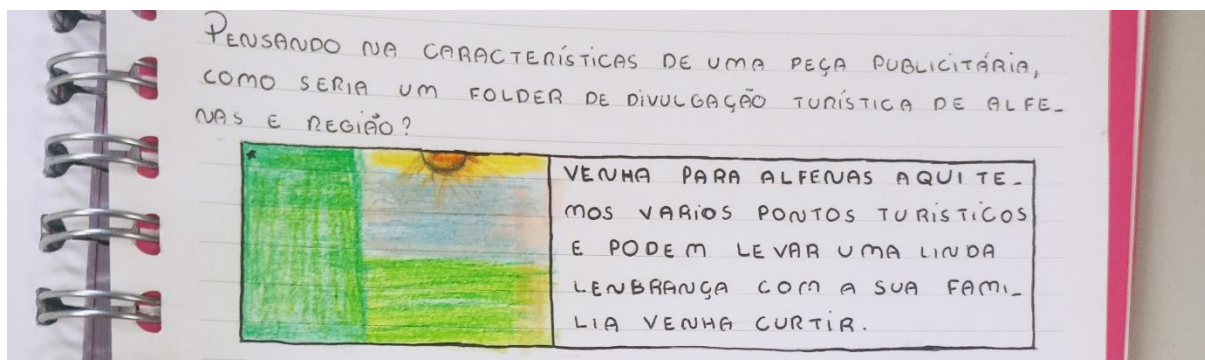 PENSANDO NA CARACTERÍSTICAS DE UMA PEÇA PUBLICITÁRIA,
COMO SERIA UM FOLDER DE DIVULGAÇÃO TURÍSTICA DE ALFE-
NAS E REGIÃO?
VENHA PARA ALFENAS AQUI TE-
MOS VARIOS PONTOS TURISTICOS
E PODEM LEVAR UMA LINDA
LENBRANÇA COM A SUA FAMI-
LIA VENHA CURTIR.